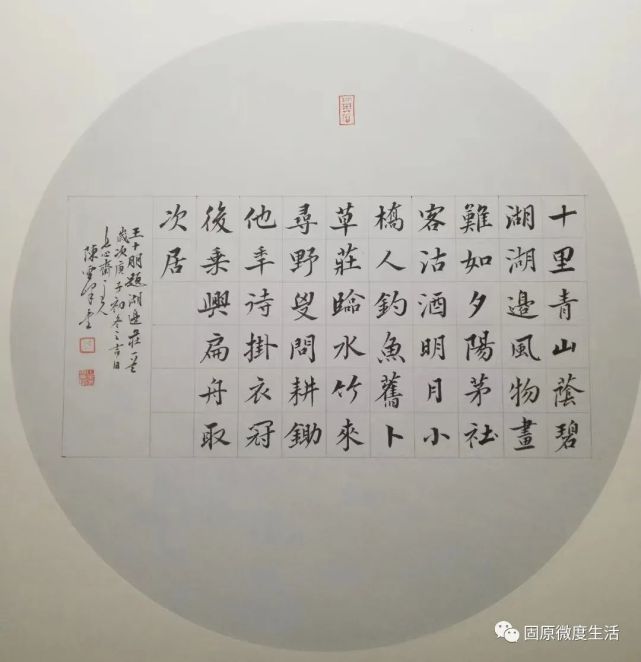 十里青山蔭碧
湖湖邊風物畫
難如夕陽茅社
客沽酒明月小
橋人釣魚舊卜
草莊臨水竹來
尋野叟問耕鋤
他年待掛衣冠
後乘興扁舟取
次居
王十朋題湖邊莊
歲次庚子初冬之吉日
心齋主人
陳書
固原微度生活